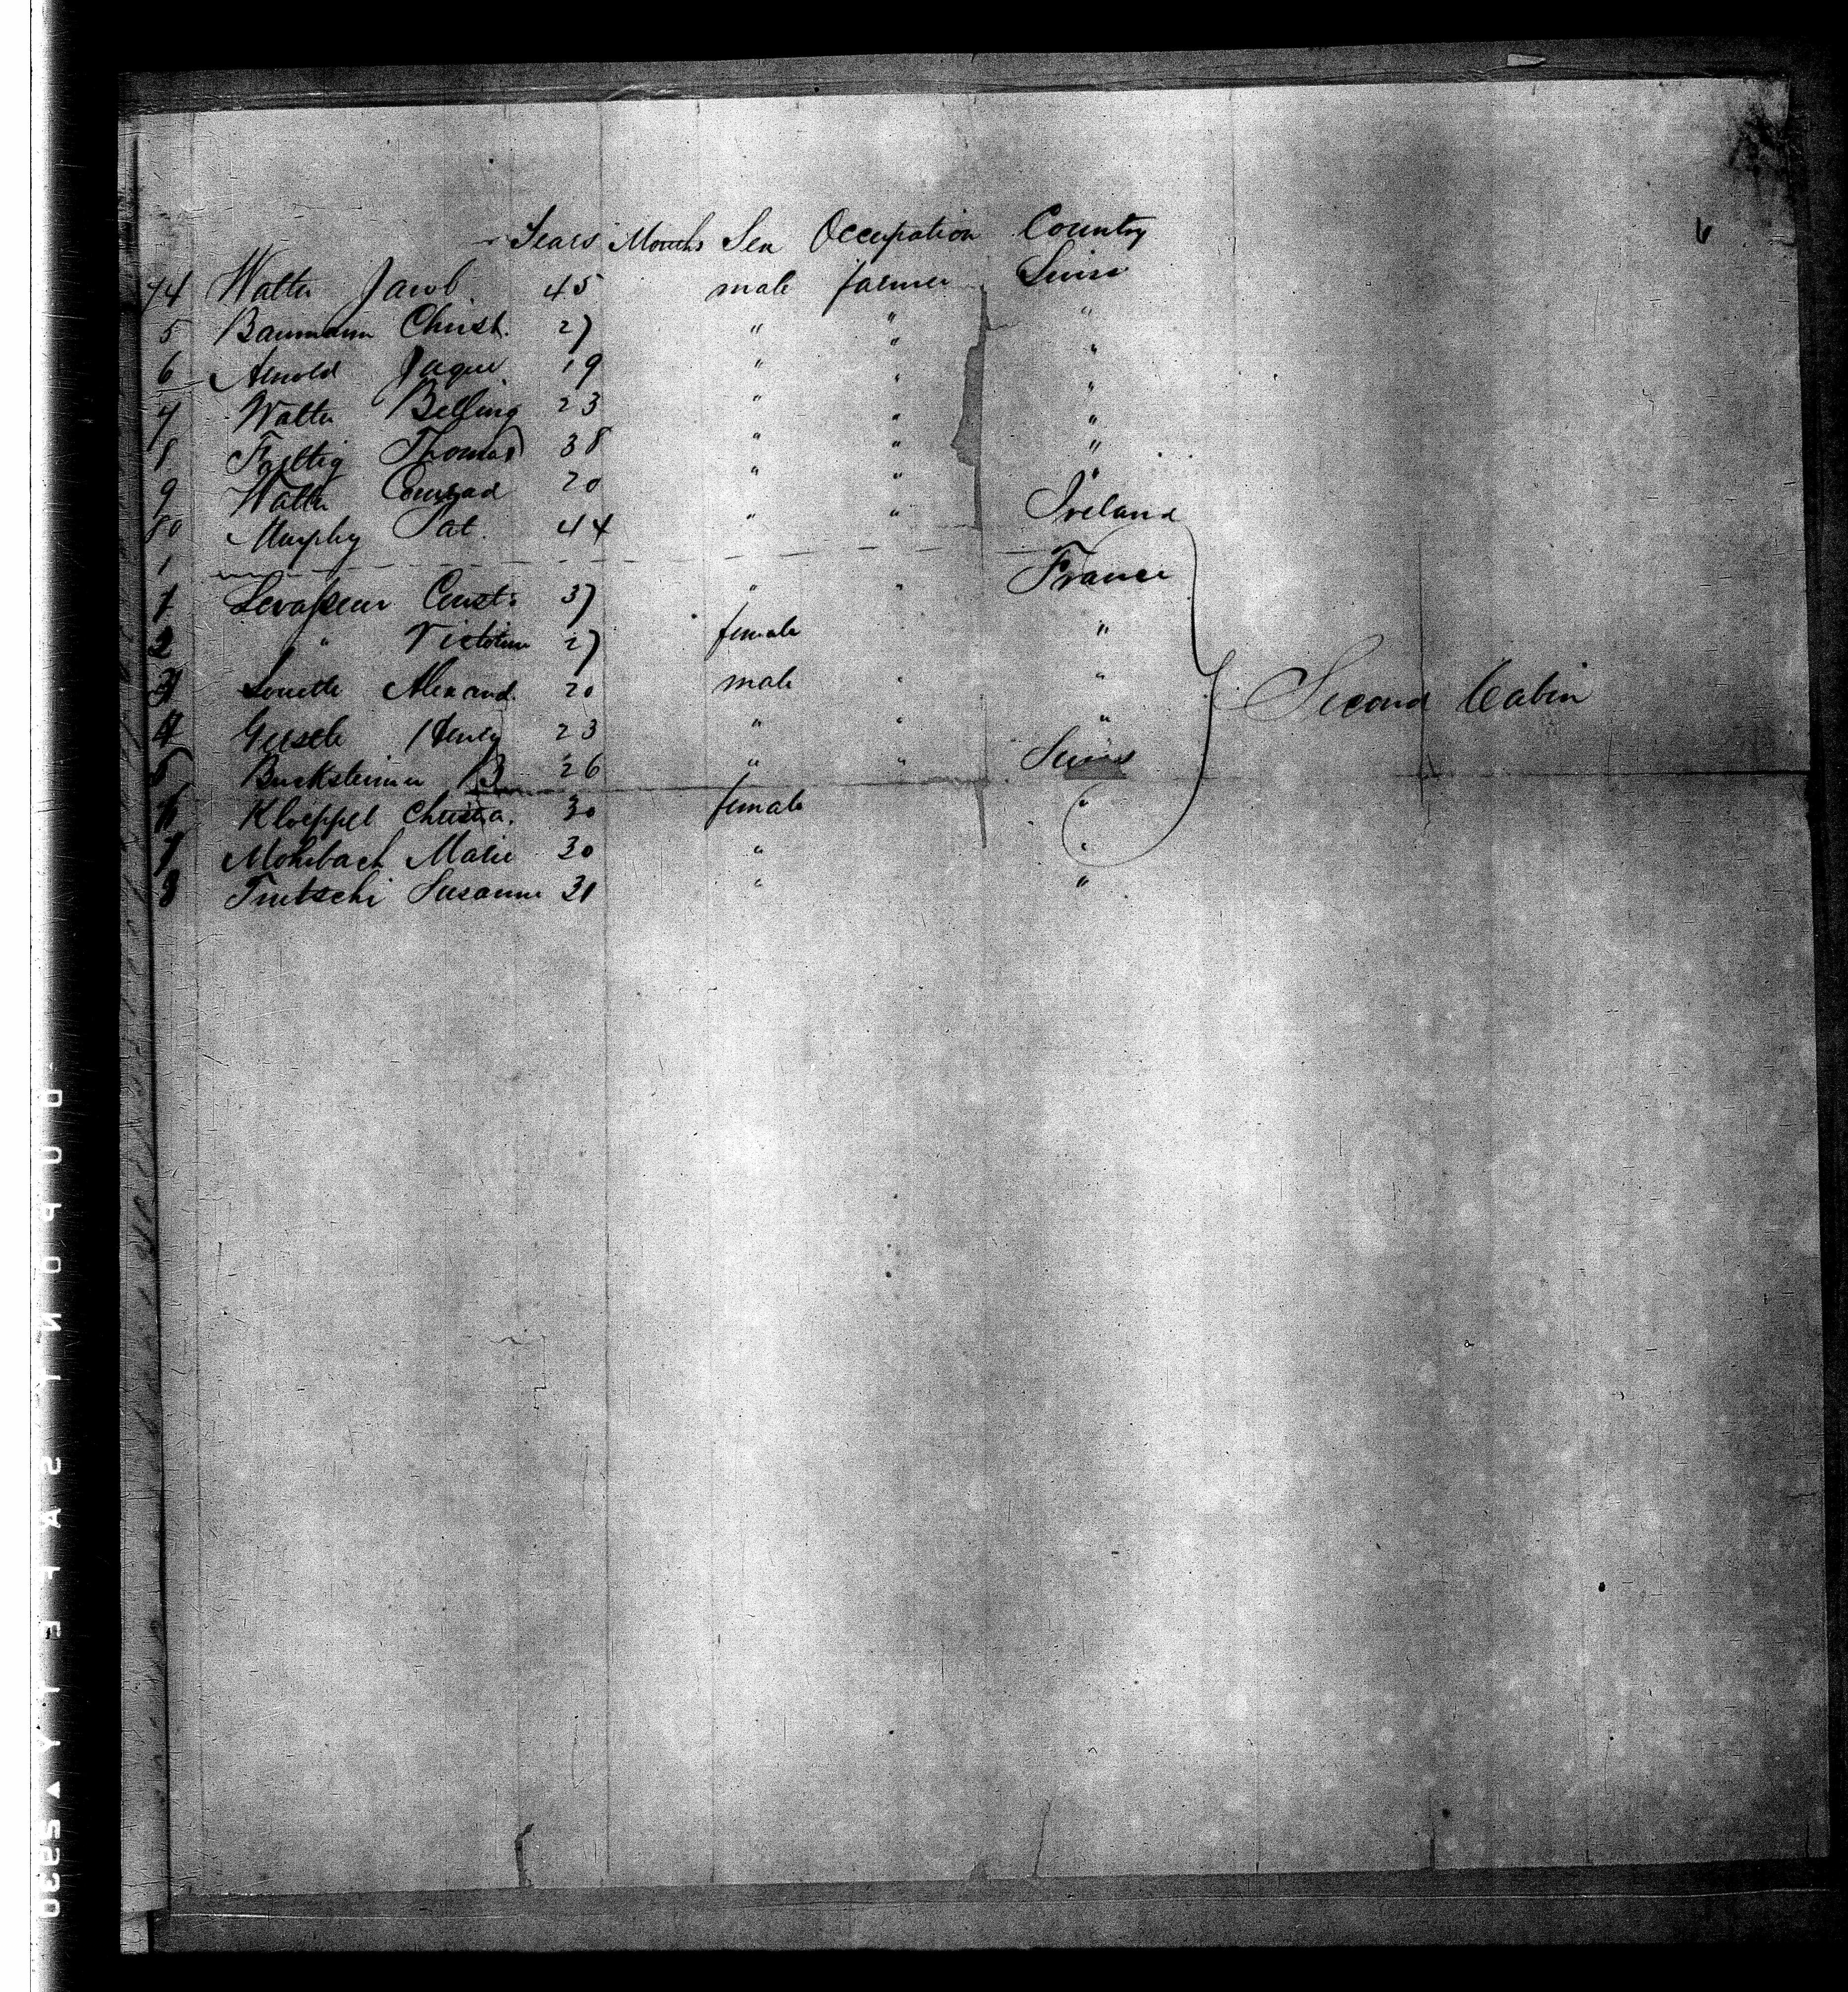 Years Months Sex Occupation Country
74 Walter Jacob 45 male farmer Suisse
5 Baumann Christ. 27 " " "
6 Arnold Jaque 19 " " "
7 Walter 23 " " "
8 Thomas 38 " " "
9 Walter Conrad 20 " " "
80 Murphy Pat. 44 " " Ireland
1 Levasseur Const. 37 " " France
2 " Victorine 27 female "
3 Alexand. 20 male " "
4 Henry 23 " " "
5 B 26 " " Suisse
6 Kloeppel Christia. 30 female "
7 Mohrbach Marie 30 " "
8 Susanne 31 " "
Second Cabin
6